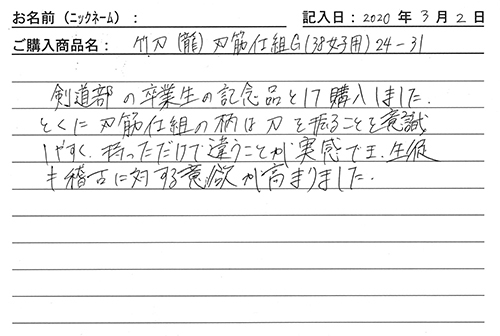 お名前（ニックネーム）： 記入日：2020 年 3 月 2 日
ご購入商品名： 竹刀（龍）刃筋仕組G（38女子用）24-31
剣道部の卒業生の記念品として購入しました。
とくに刃筋仕組の柄は刀を振ることを意識
しやすく、持っただけで違うことが実感でき、生徒
も稽古に対する意欲が高まりました。